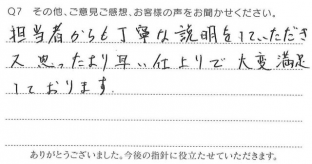 Q7 その他、ご意見ご感想、お客様の声をお聞かせください。
担当者からも丁寧な説明をしていただき
又思ったより早い仕上りで大変満足
しております。
ありがとうございました。今後の指針に役立たせていただきます。